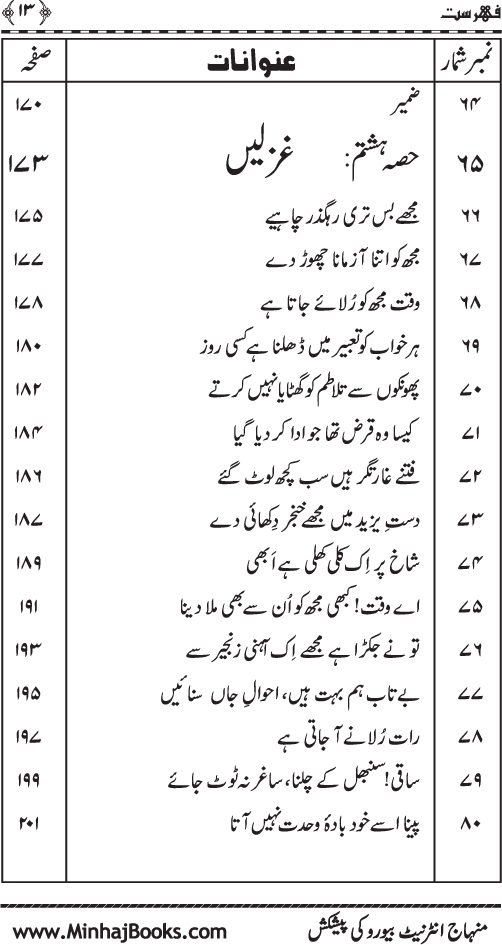 فہرست ﴿۱۳﴾
نمبر شمار عنوانات صفحہ
۶۴ ضمیر ۱۷۰
۶۵ حصہ ہشتم: غزلیں ۱۷۳
۶۶ مجھے بس تری رہگذر چاہیے ۱۷۵
۶۷ مجھ کو اتنا آزمانا چھوڑ دے ۱۷۷
۶۸ وقت مجھ کو رُلائے جاتا ہے ۱۷۸
۶۹ ہر خواب کو تعبیر میں ڈھلنا ہے کسی روز ۱۸۰
۷۰ پھونکوں سے تلاطم کو گھٹایا نہیں کرتے ۱۸۲
۷۱ کیسا وہ قرض تھا جو ادا کر دیا گیا ۱۸۴
۷۲ فتنے غارتگر ہیں سب کچھ لوٹ گئے ۱۸۶
۷۳ دستِ یزید میں مجھے خنجر دِکھائی دے ۱۸۷
۷۴ شاخ پر اِک کلی کھلی ہے اَبھی ۱۸۹
۷۵ اے وقت! کبھی مجھ کو اُن سے بھی ملا دینا ۱۹۱
۷۶ تو نے جکڑا ہے مجھے اِک آہنی زنجیر سے ۱۹۳
۷۷ بے تاب ہم بہت ہیں، احوالِ جاں سنائیں ۱۹۵
۷۸ رات رُلانے آ جاتی ہے ۱۹۷
۷۹ ساقی! سنبھل کے چلنا، ساغر نہ ٹوٹ جائے ۱۹۹
۸۰ پینا اسے خود بادۂ وحدت نہیں آتا ۲۰۱
منہاج انٹرنیٹ بیورو کی پیشکش www.MinhajBooks.com